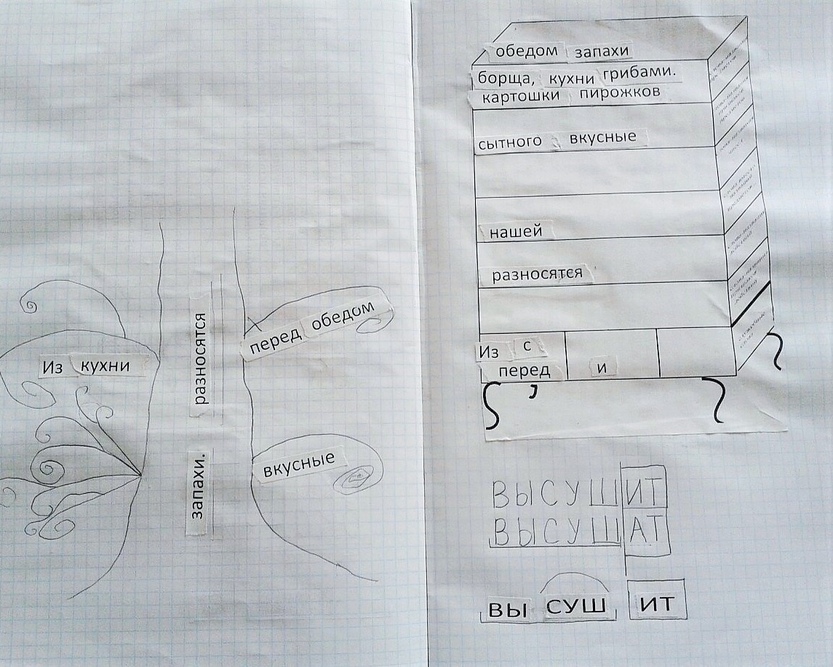 Из кухни
разносятся
запахи.
перед обедом
вкусные
обедом запахи
борща, кухни грибами.
картошки пирожков
сытного вкусные
нашей
разносятся
Из с
перед и
,
ВЫСУШИТ
ВЫСУШАТ
ВЫ СУШ ИТ